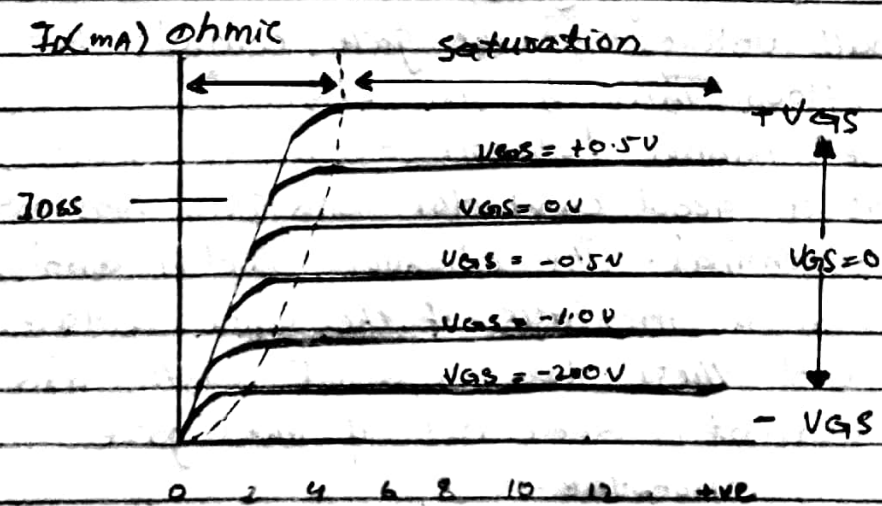 ID(mA) Ohmic saturation
+VGS
VGS = +0.5V
IDSS
VGS = 0V
VGS = -0.5V
VGS = 0
VGS = -1.0V
VGS = -2.0V
- VGS
0 2 4 6 8 10 12 +ve